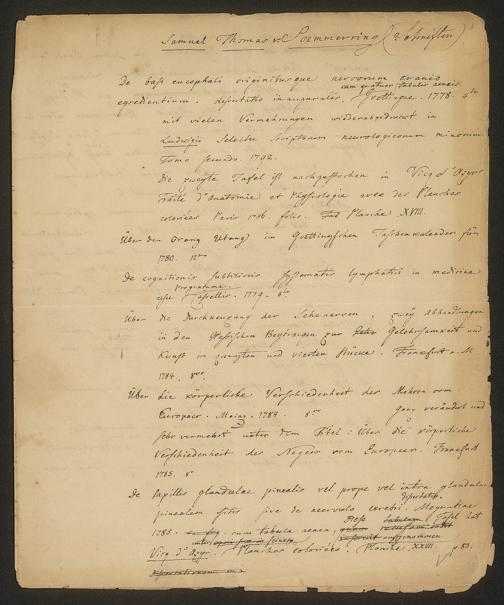 Samuel Thomas v Soemmerring (Schriften)
De basi encephali originibus que nervorum cranio
cum quatuor tabulis aeneis
egredientium. dissertatio inauguralis. Goettingae. 1778. 4to
mit vielen Vermehrungen wiederabgedruckt in
Ludwigii Selectis Scriptorum neurologicorum minorum
Tomo secundo. 1792.
Die zweyte Tafel ist nachgestochen in Vicq d'Azyrs
Traité d'Anatomie et Physiologie avec des Planches
coloriées Paris 1786. folio. Planche XVIII.
Über den Orang Utang im Goettingischen Taschenkalender für
1780. 12mo
De cognitionis subtilioris systematis lymphatici in medicina
Programma
usu Cassellis. 1779. 4to
Über die Durchkreuzung der Sehenerven, zwey Abhandlungen
in den Hessischen Beytraegen zur Gelehrsamkeit und
Kunst im zweyten und vierten Stücke. Frankfurt a. M
1784. 8vo.
Über die körperliche Verschiedenheit des Mohren vom
Europaer. Mainz. 1784. 8vo ganz verändert und
sehr vermehrt unter dem Titel: Über die körperliche
Verschiedenheit des Negers vom Europaeer. Frankfurt
1785. 8
De lapillis glandulae pinealis vel prope vel intra glandulam
dissertatio.
pinealem sitis sive de acervulo cerebri. Moguntiae
Diese Tafel hat
1785. cum tabula aenea,
aufgenommen
Vicq d'Azyr. Planches coloriées. Planche XXVII. p 83.